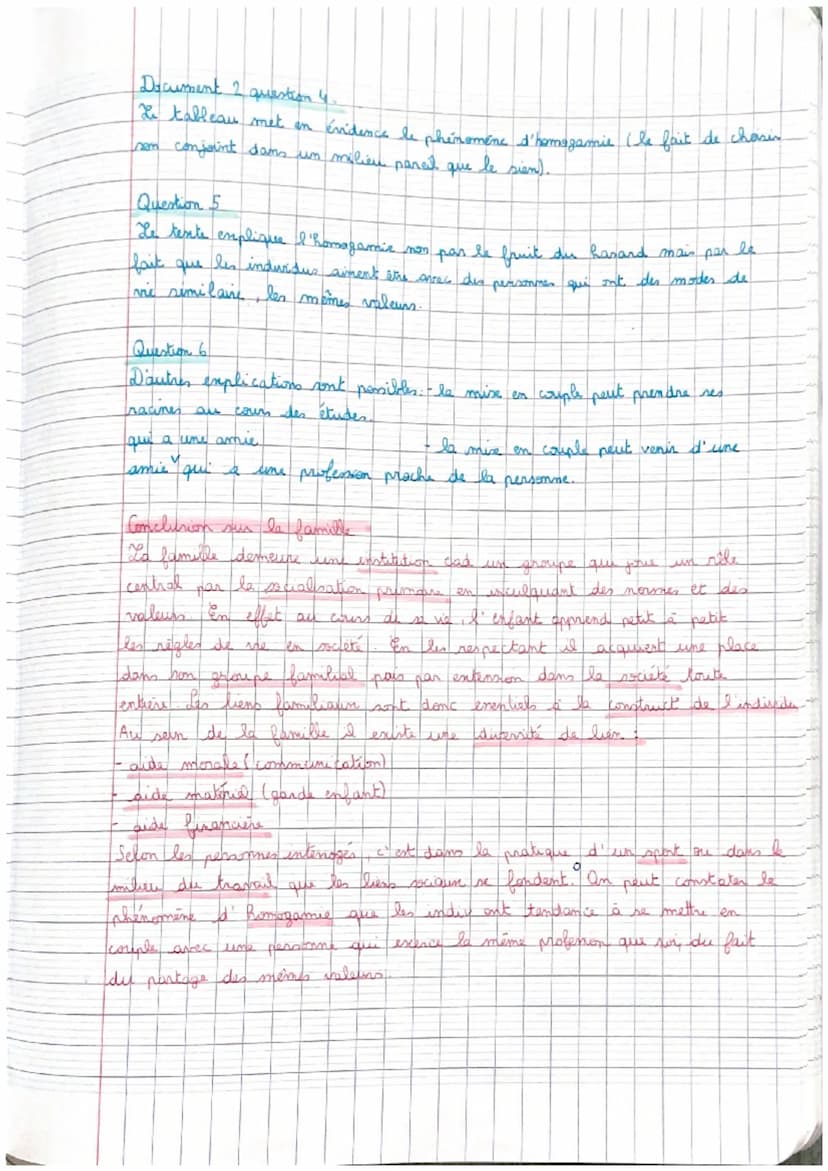 Document 2 question 4.
Le tableau met en évidence le phénomène d'homogamie (le fait de choisir
son conjoint dans un milieu pareil que le sien).
Question 5
Le texte explique l'homogamie non par le fruit du hasard mais par le
fait que les individus aiment être avec des personnes qui ont des modes de
vie similaire, les mêmes valeurs.
Question 6
D'autres explications sont possibles: - la mise en couple peut prendre ses
racines au cours des études.
qui a une amie - la mise en couple peut venir d'une
amie v qui a une profession proche de la personne.
Conclusion sur la famille
La famille demeure une institution cad un groupe qui joue un rôle
central par la socialisation primaire en inculquant des normes et des
valeurs. En effet au cours de sa vie, l'enfant apprend petit à petit
les règles de vie en société. En les respectant il acquiert une place
dans son groupe familial puis par extension dans la société toute
entière. Les liens familiaux sont donc essentiels à la construct de l'individu
Au sein de la famille il existe une diversité de lien :
- aide morale (communication)
- aide matériel (garde enfant)
- aide financière
Selon les personnes interrogés, c'est dans la pratique d'un sport ou dans le
milieu du travail que les liens sociaux se fondent. On peut constater le
phénomène d'homogamie que les indiv ont tendance à se mettre en
couple avec une personne qui exerce la même profession que soi, du fait
du partage des mêmes valeurs.